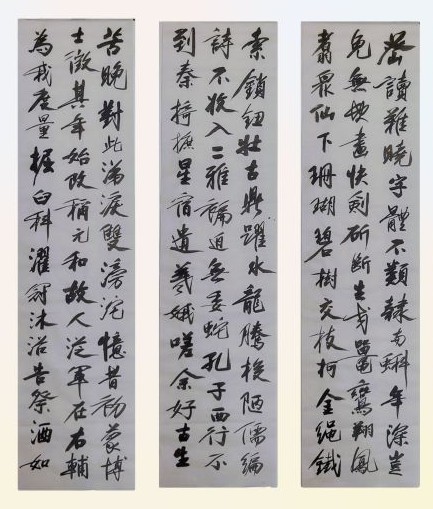 密讀難曉字體不類隸与蝌年深豈
免無缺畫快剑斫断生鼉鸞翔鳳
翥眾仙下珊瑚碧樹交枝柯金绳鐵
索鎖鈕壯古鼎躍水龍騰梭陋儒編
詩不收入二雅褊迫無委蛇孔子西行不
到秦掎摭星宿遺羲娥嗟余好古生
苦晚對此涕淚雙滂沱憶昔初蒙博
士徵其年始改稱元和故人從軍在右輔
為我度量掘臼科濯冠沐浴告祭酒如